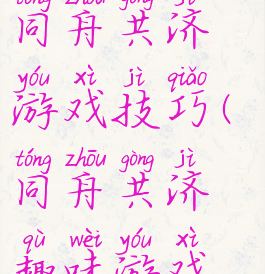 tóng zhōu gòng jì
同舟共济
yóu xì jì qiǎo
游戏技巧(
tóng zhōu gòng jì
同舟共济
qù wèi yóu xì
趣味游戏